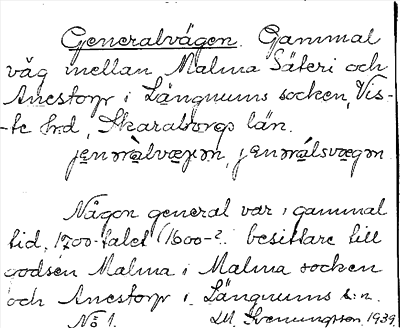 Generalvägen. Gammal
väg mellan Malma Säteri och
Anestorp i Längnums socken, Vis-
-te hd, Skaraborgs län.
jenmàlvægen, jenmálsvægen
Någon general var i gammal
tid, 1700-talet (1600-?. besittare till
godsen Malma i Malma socken
och Anestorp i Längnums s:n.
No 1. M. Svenungsson 1939.